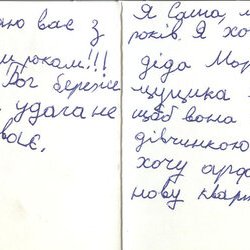 ваю вас з
роком!!!
Бог береже
удача не
ває.
Я Саша,
років. Я хо
діда Мор
цуцика
щоб вона
дівчинкою
хочу арф
нову квар